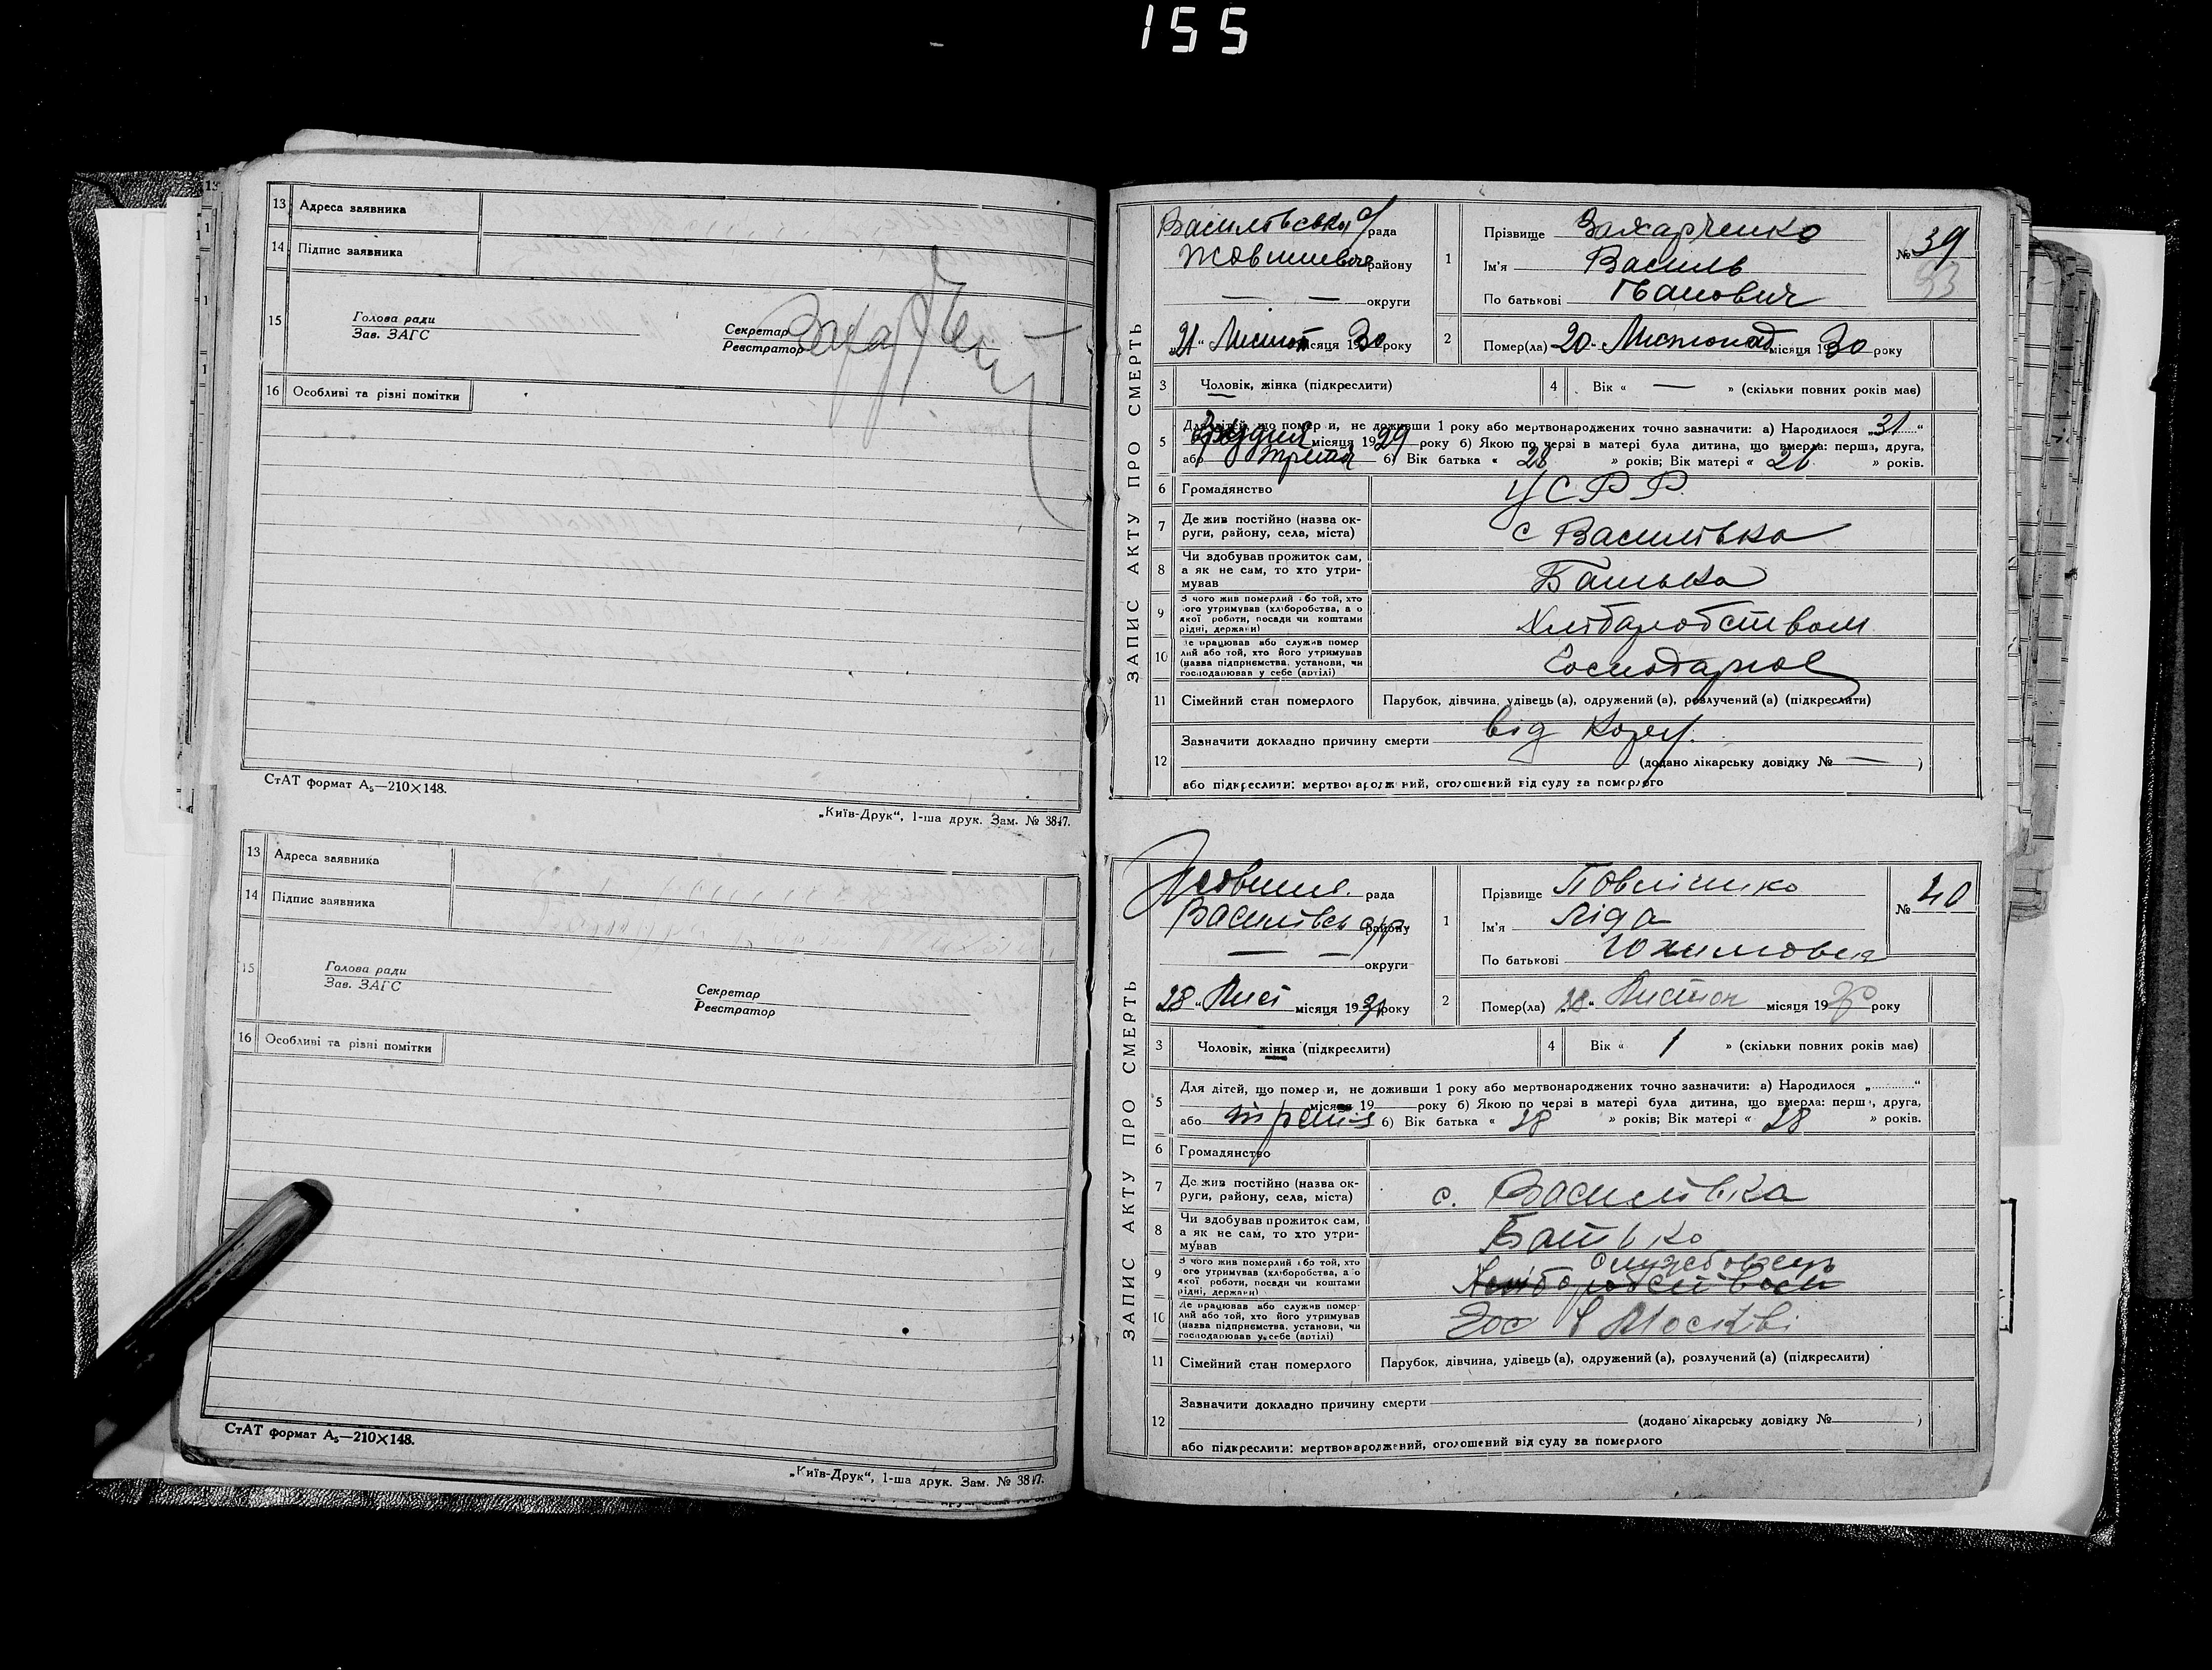 155
13 Адреса заявника
14 Підпис заявника
15 Голова ради
Зав. ЗАГС
Секретар
Реєстратор
16 Особливі та різні помітки
СтАТ формат А₅—210×148.
„Київ-Друк“, 1-ша друк. Зам. № 3847.
13 Адреса заявника
14 Підпис заявника
15 Голова ради
Зав. ЗАГС
Секретар
Реєстратор
16 Особливі та різні помітки
СтАТ формат А₅—210×148.
„Київ-Друк“, 1-ша друк. Зам. № 3847.
ЗАПИС АКТУ ПРО СМЕРТЬ
Василівська рада
району
— — округи
„21“ Листоп місяця 1930 року
1 Прізвище Захарченко
Ім'я Василь
По батькові Іванович
№ 39
93
2 Помер(ла) „20“ Листопад місяця 1930 року
3 Чоловік, жінка (підкреслити)
4 Вік « — » (скільки повних років має)
5 Для дітей, що померли, не доживши 1 року або мертвонароджених точно зазначити: а) Народилося „31“
Грудня місяця 1929 року б) Якою по черзі в матері була дитина, що вмерла: перша, друга,
або третя б) Вік батька « 28 » років; Вік матері « 26 » років.
6 Громадянство УСРР
7 Де жив постійно (назва округи, району, села, міста) с Василівка
8 Чи здобував прожиток сам, а як не сам, то хто утримував Батько
9 З чого жив померлий або той, хто його утримував (хліборобства, або якої роботи, посади чи коштами рідні, держави) Хліборобством
10 Де працював або служив померлий або той, хто його утримував (назва підприємства, установи, чи господарював у себе (артілі)
11 Сімейний стан померлого Парубок, дівчина, удівець (а), одружений (а), розлучений (а) (підкреслити)
12 Зазначити докладно причину смерти від Кору
(додано лікарську довідку № — )
або підкреслити: мертвонароджений, оголошений від суду за померлого
ЗАПИС АКТУ ПРО СМЕРТЬ
рада
Василівськ району
— — округи
28 „ Лист місяця 19 року
1 Прізвище
Ім'я Ліда
По батькові Юхимовна
№ 40
2 Помер(ла) „28“ Листоп місяця 1930 року
3 Чоловік, жінка (підкреслити)
4 Вік « 1 » (скільки повних років має)
5 Для дітей, що померли, не доживши 1 року або мертвонароджених точно зазначити: а) Народилося „ “
місяця 19 року б) Якою по черзі в матері була дитина, що вмерла: перша, друга,
або третя б) Вік батька « 38 » років; Вік матері « 28 » років.
6 Громадянство
7 Де жив постійно (назва округи, району, села, міста) с. Василівка
8 Чи здобував прожиток сам, а як не сам, то хто утримував Батько
9 З чого жив померлий або той, хто його утримував (хліборобства, або якої роботи, посади чи коштами рідні, держави) служебовець
Хліборобством
10 Де працював або служив померлий або той, хто його утримував (назва підприємства, установи, чи господарював у себе (артілі) Москві
11 Сімейний стан померлого Парубок, дівчина, удівець (а), одружений (а), розлучений (а) (підкреслити)
12 Зазначити докладно причину смерти
(додано лікарську довідку № )
або підкреслити: мертвонароджений, оголошений від суду за померлого